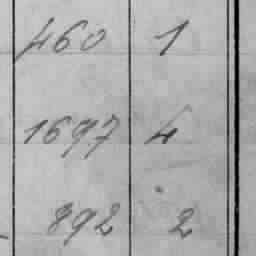 460 1
1697 4
892 2